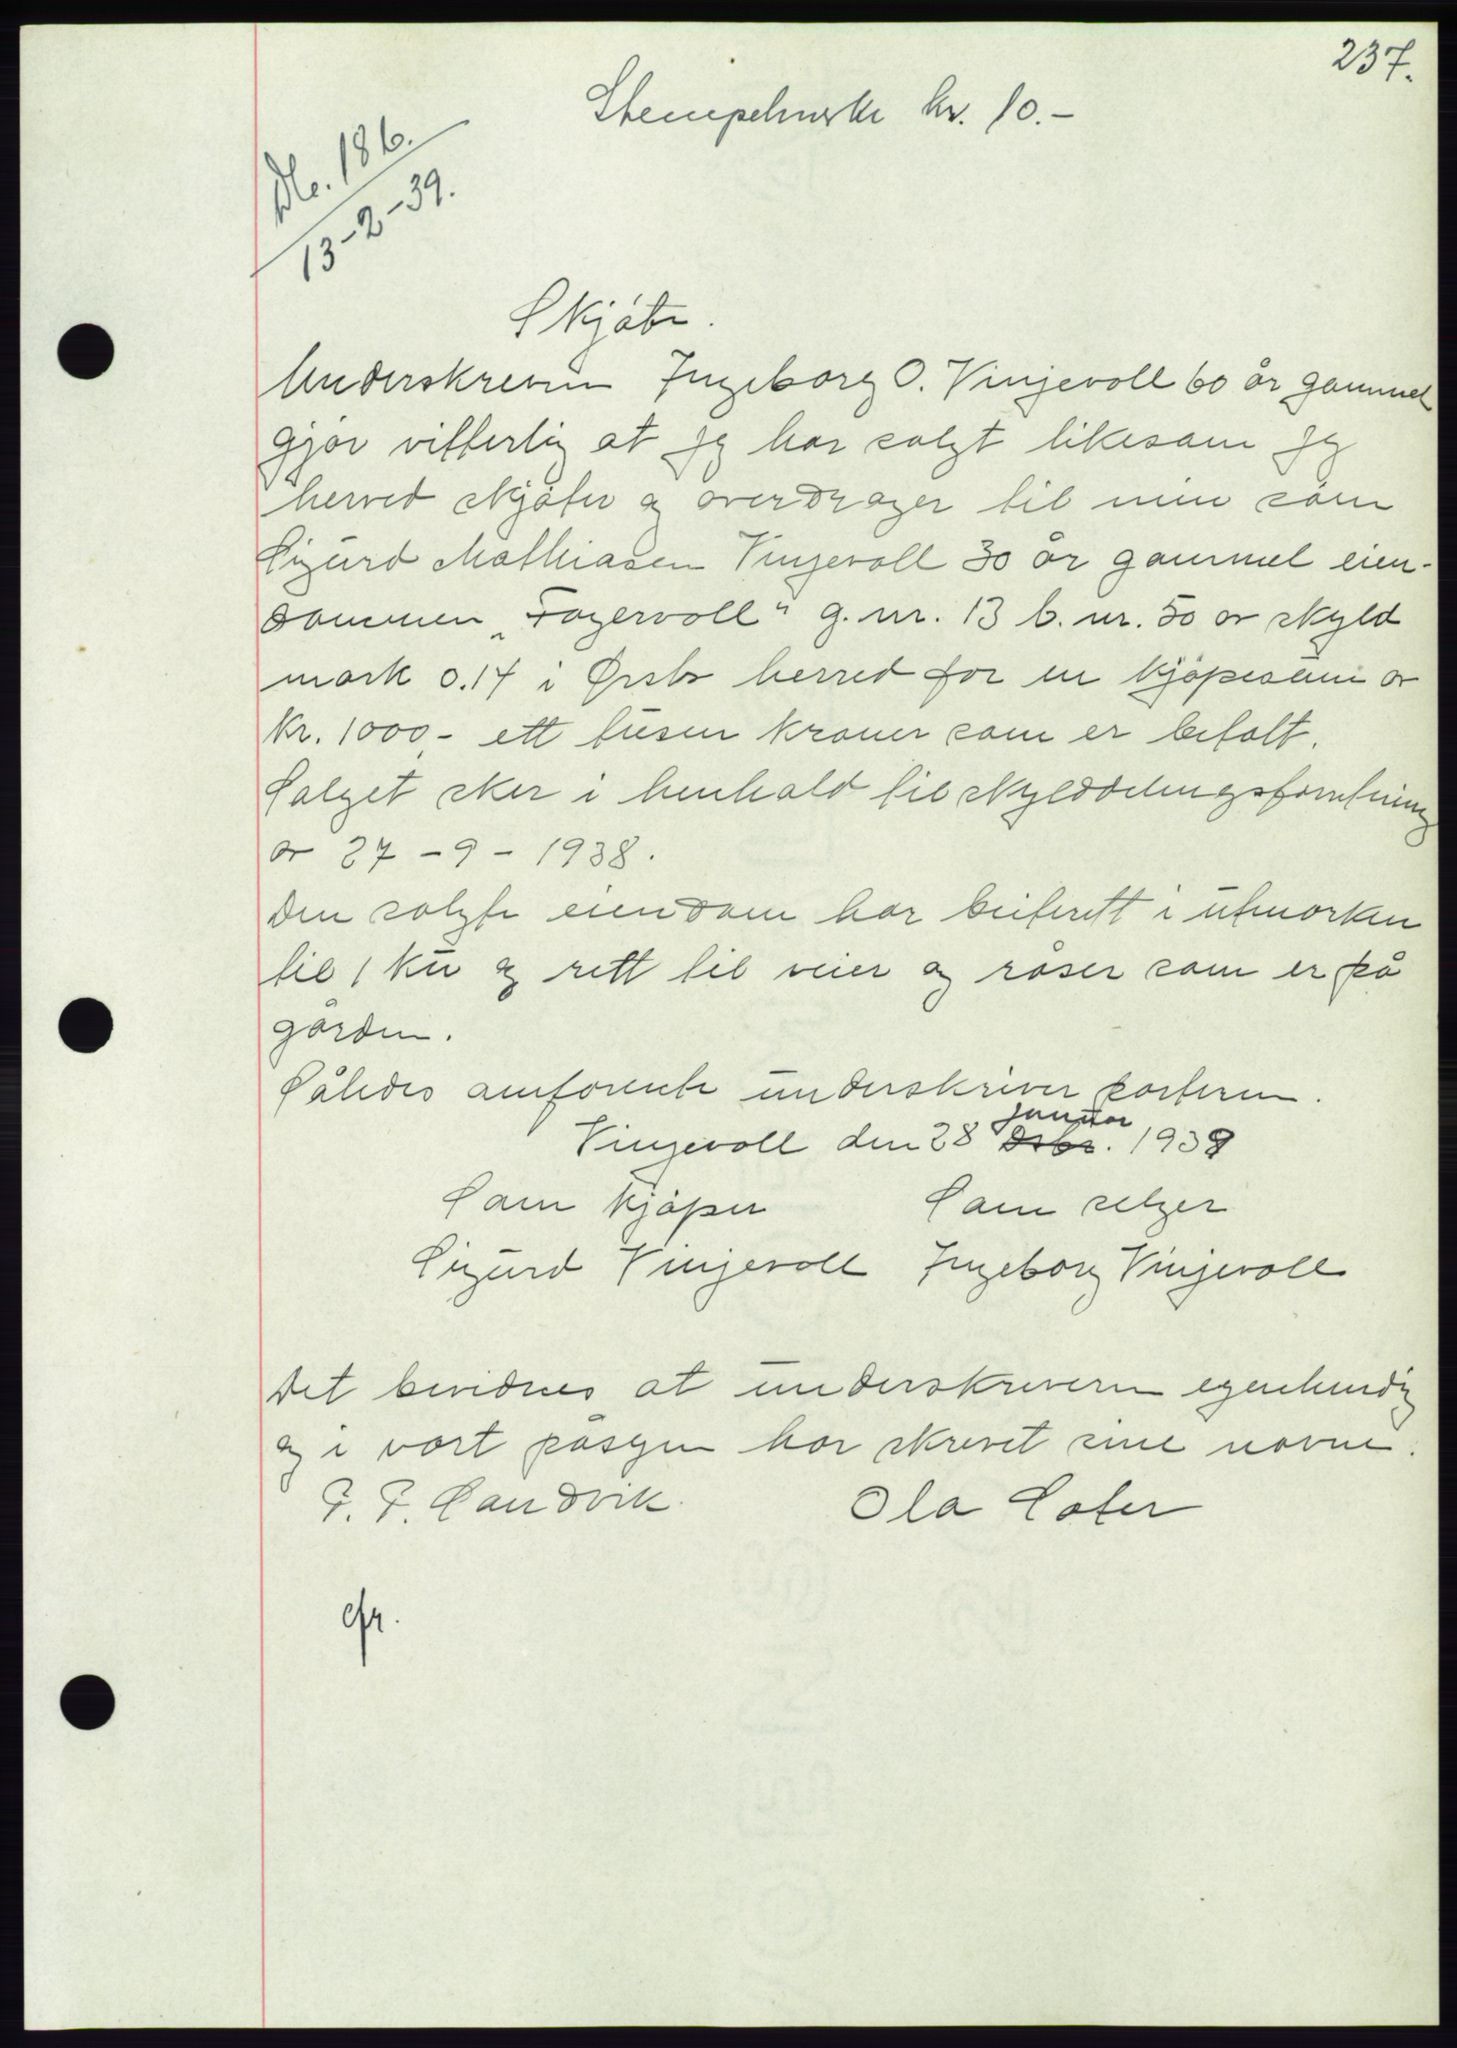 237.
Stempelmerke kr. 10.-
Dle. 186.
13-2-39.
Skjøte.
Underskreven Ingeborg O. Vinjevoll 60 år gammel
gjør vitterlig at jeg har solgt likesom jeg
herved skjøter og overdrager til min sønn
Sigurd Mathiasen Vinjevoll 30 år gammel eien-
dommen „Fagervoll" g. nr. 13 b. nr. 50 av skyld
mark 0.14 i Ørsta herred for en kjøpesum av
kr. 1000,- ett tusen kroner som er betalt.
Salget sker i henhold til skylddelingsforretning
av 27 - 9 - 1938.
Den solgte eiendom har beiterett i utmarken
til 1 ku og rett til veier og råser som er på
gården.
Således omforente underskriver partene.
januar
Vinjevoll den 28 Dsbr. 1939
Som kjøper Som selger
Sigurd Vinjevoll Ingeborg Vinjevoll
Det bevidnes at underskriverne egenhendig
og i vort påsyn har skrevet sine navne.
P. P. Sandvik. Ola Sæter
cfr.